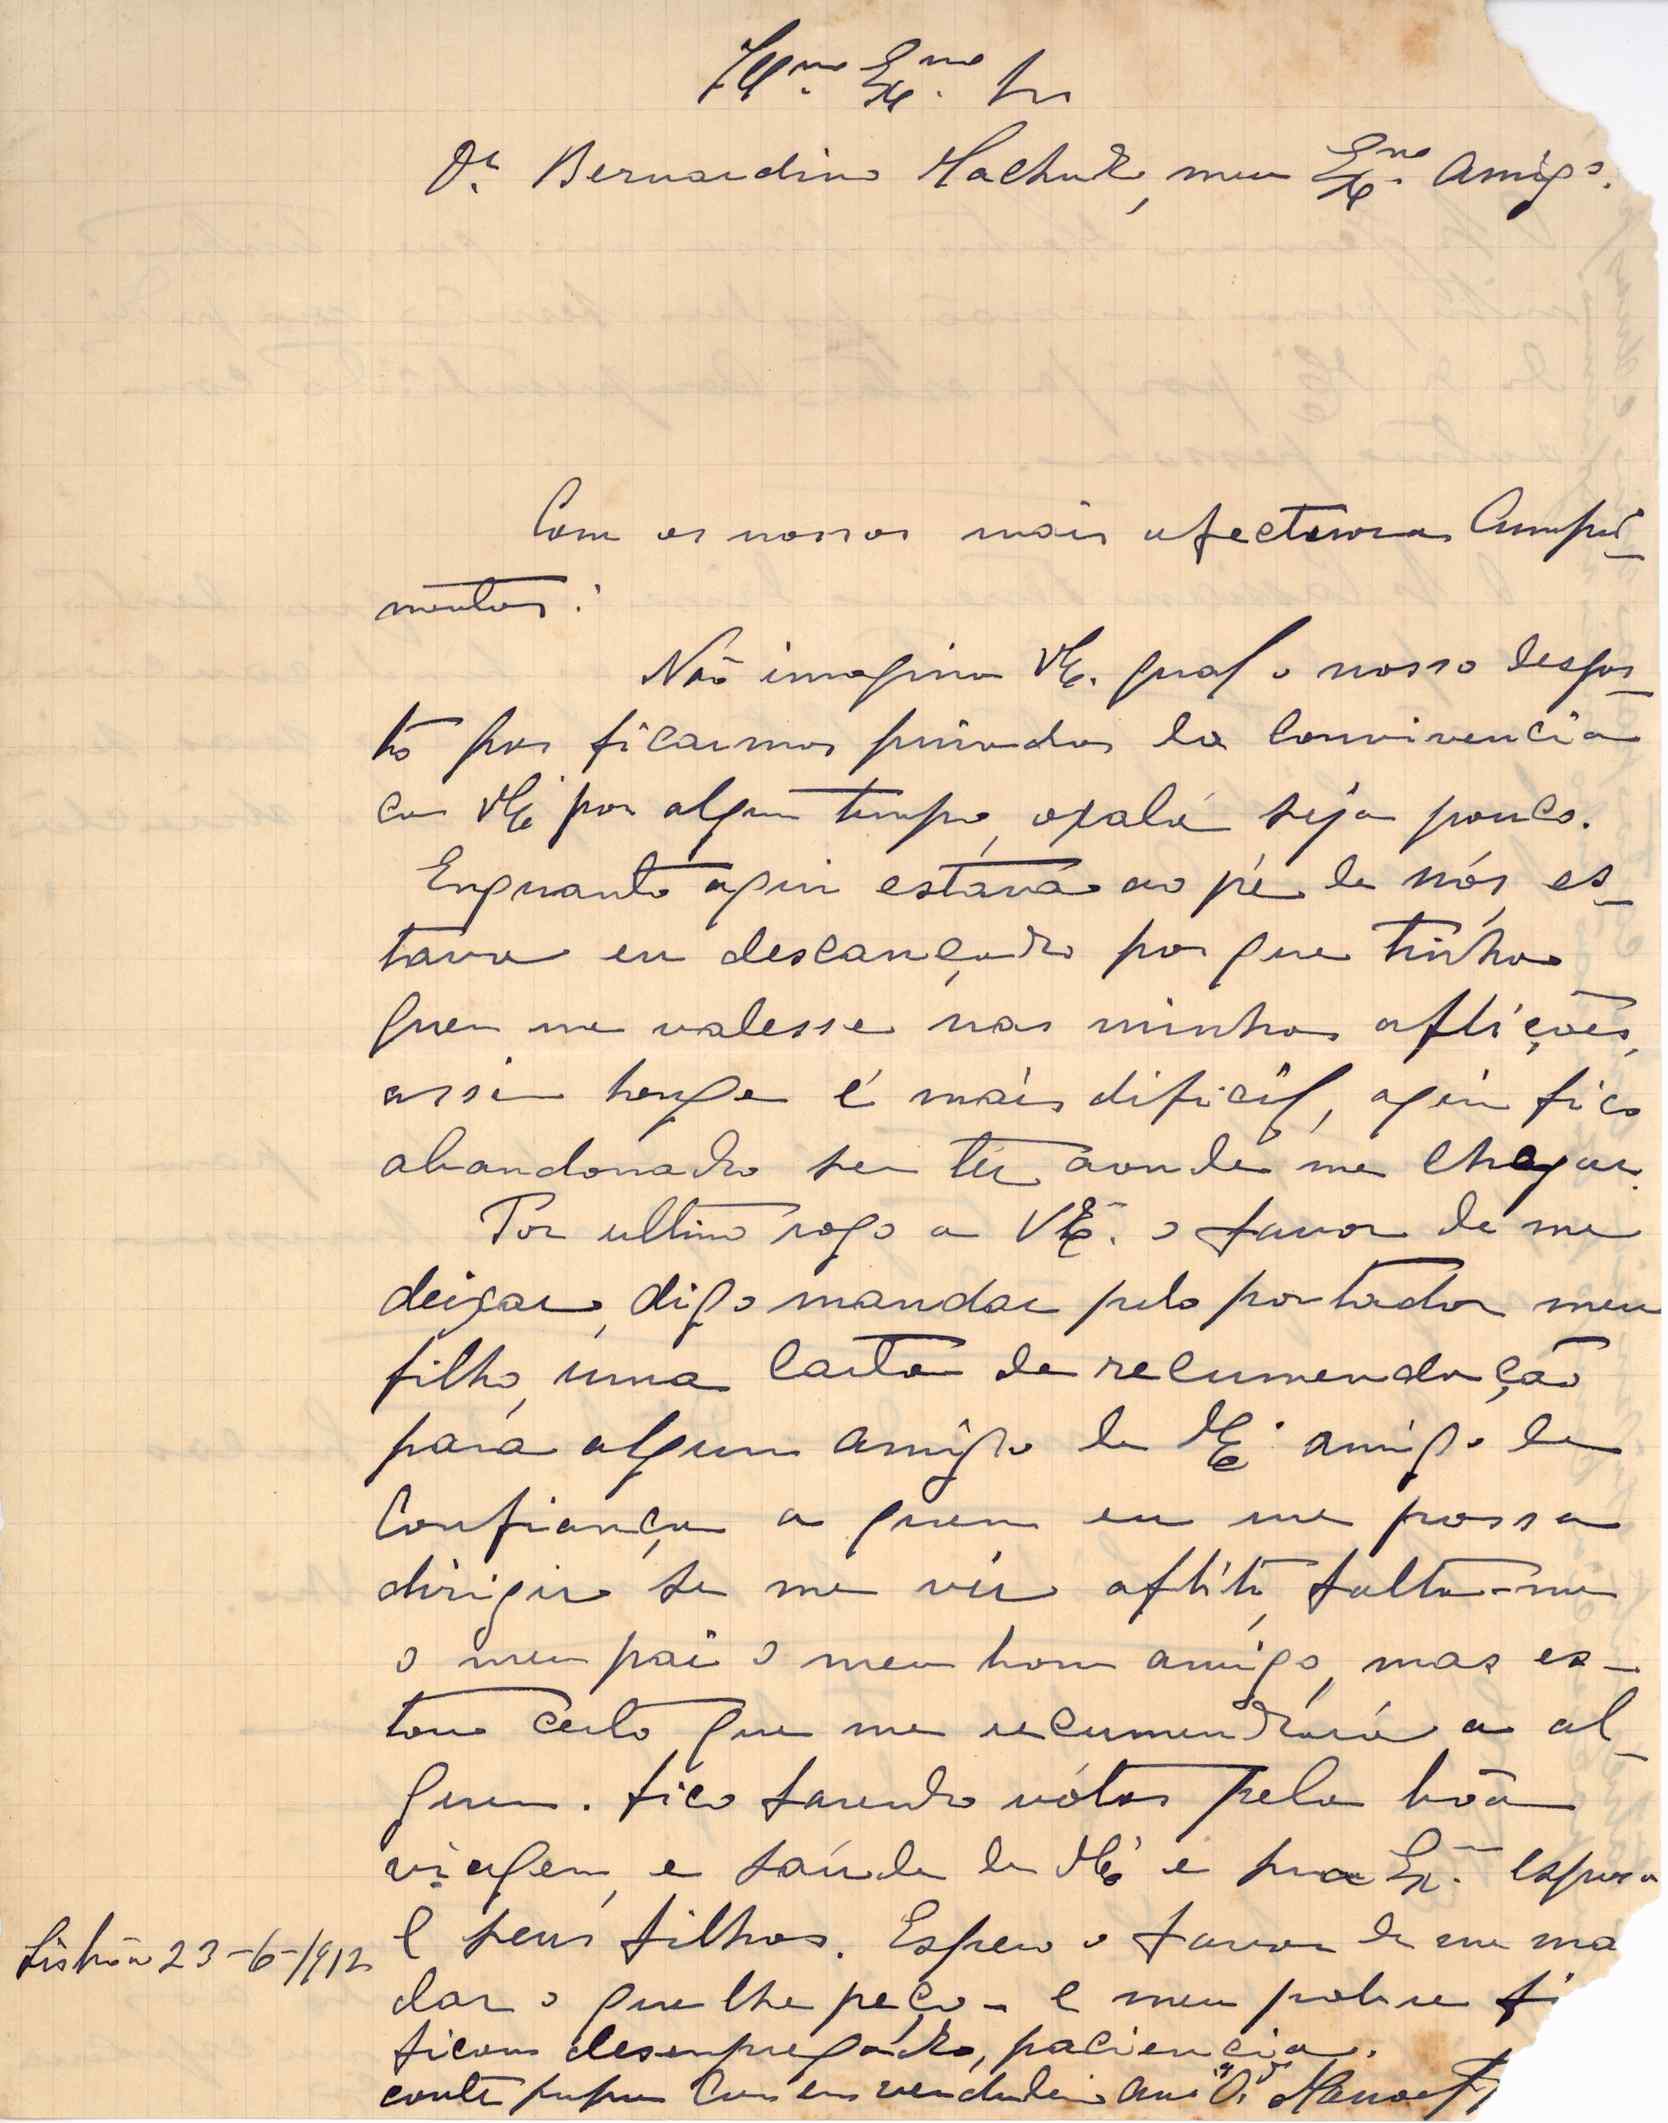 Illmo. Exmo. Sr
Dr. Bernardino Machado, meu Exmo. Amigo.
Com os nossos mais afectuosos Cumpri-
mentos:
Não imagina VEx. qual o nosso desgos-
to por ficarmos privados da convivencia
com VEx por algum tempo, oxalá seja pouco.
Enquanto aqui estava ao pé de nós, es-
tava eu descançado por que tinha
quem me valesse nas minhas aflições,
assim hoje é mais dificil, aqui fico
abandonado sem ter aonde me chegar.
Por ultimo rogo a VEx. o favor de me
deixar, digo mandar pelo portador meu
filho, uma carta de recumendação
para algum amigo de VEx. amigo de
Confiança a quem eu me possa
dirigir se me vir aflito, falta-me
o meu pai o meu bom amigo, mas es-
tou certo que me recumendará a al-
guem. fico fazendo vótos pela bôa
viagem, e saúde de VEx e sua Exma. esposa
e seus filhos. Espero o favor de me ma
dar o que lhe peço - e meu pobre fi
ficou desempregado, paciencia.
conte sempre com em verdadeiro amigo Manoel
Lisbôa 23-6-1912